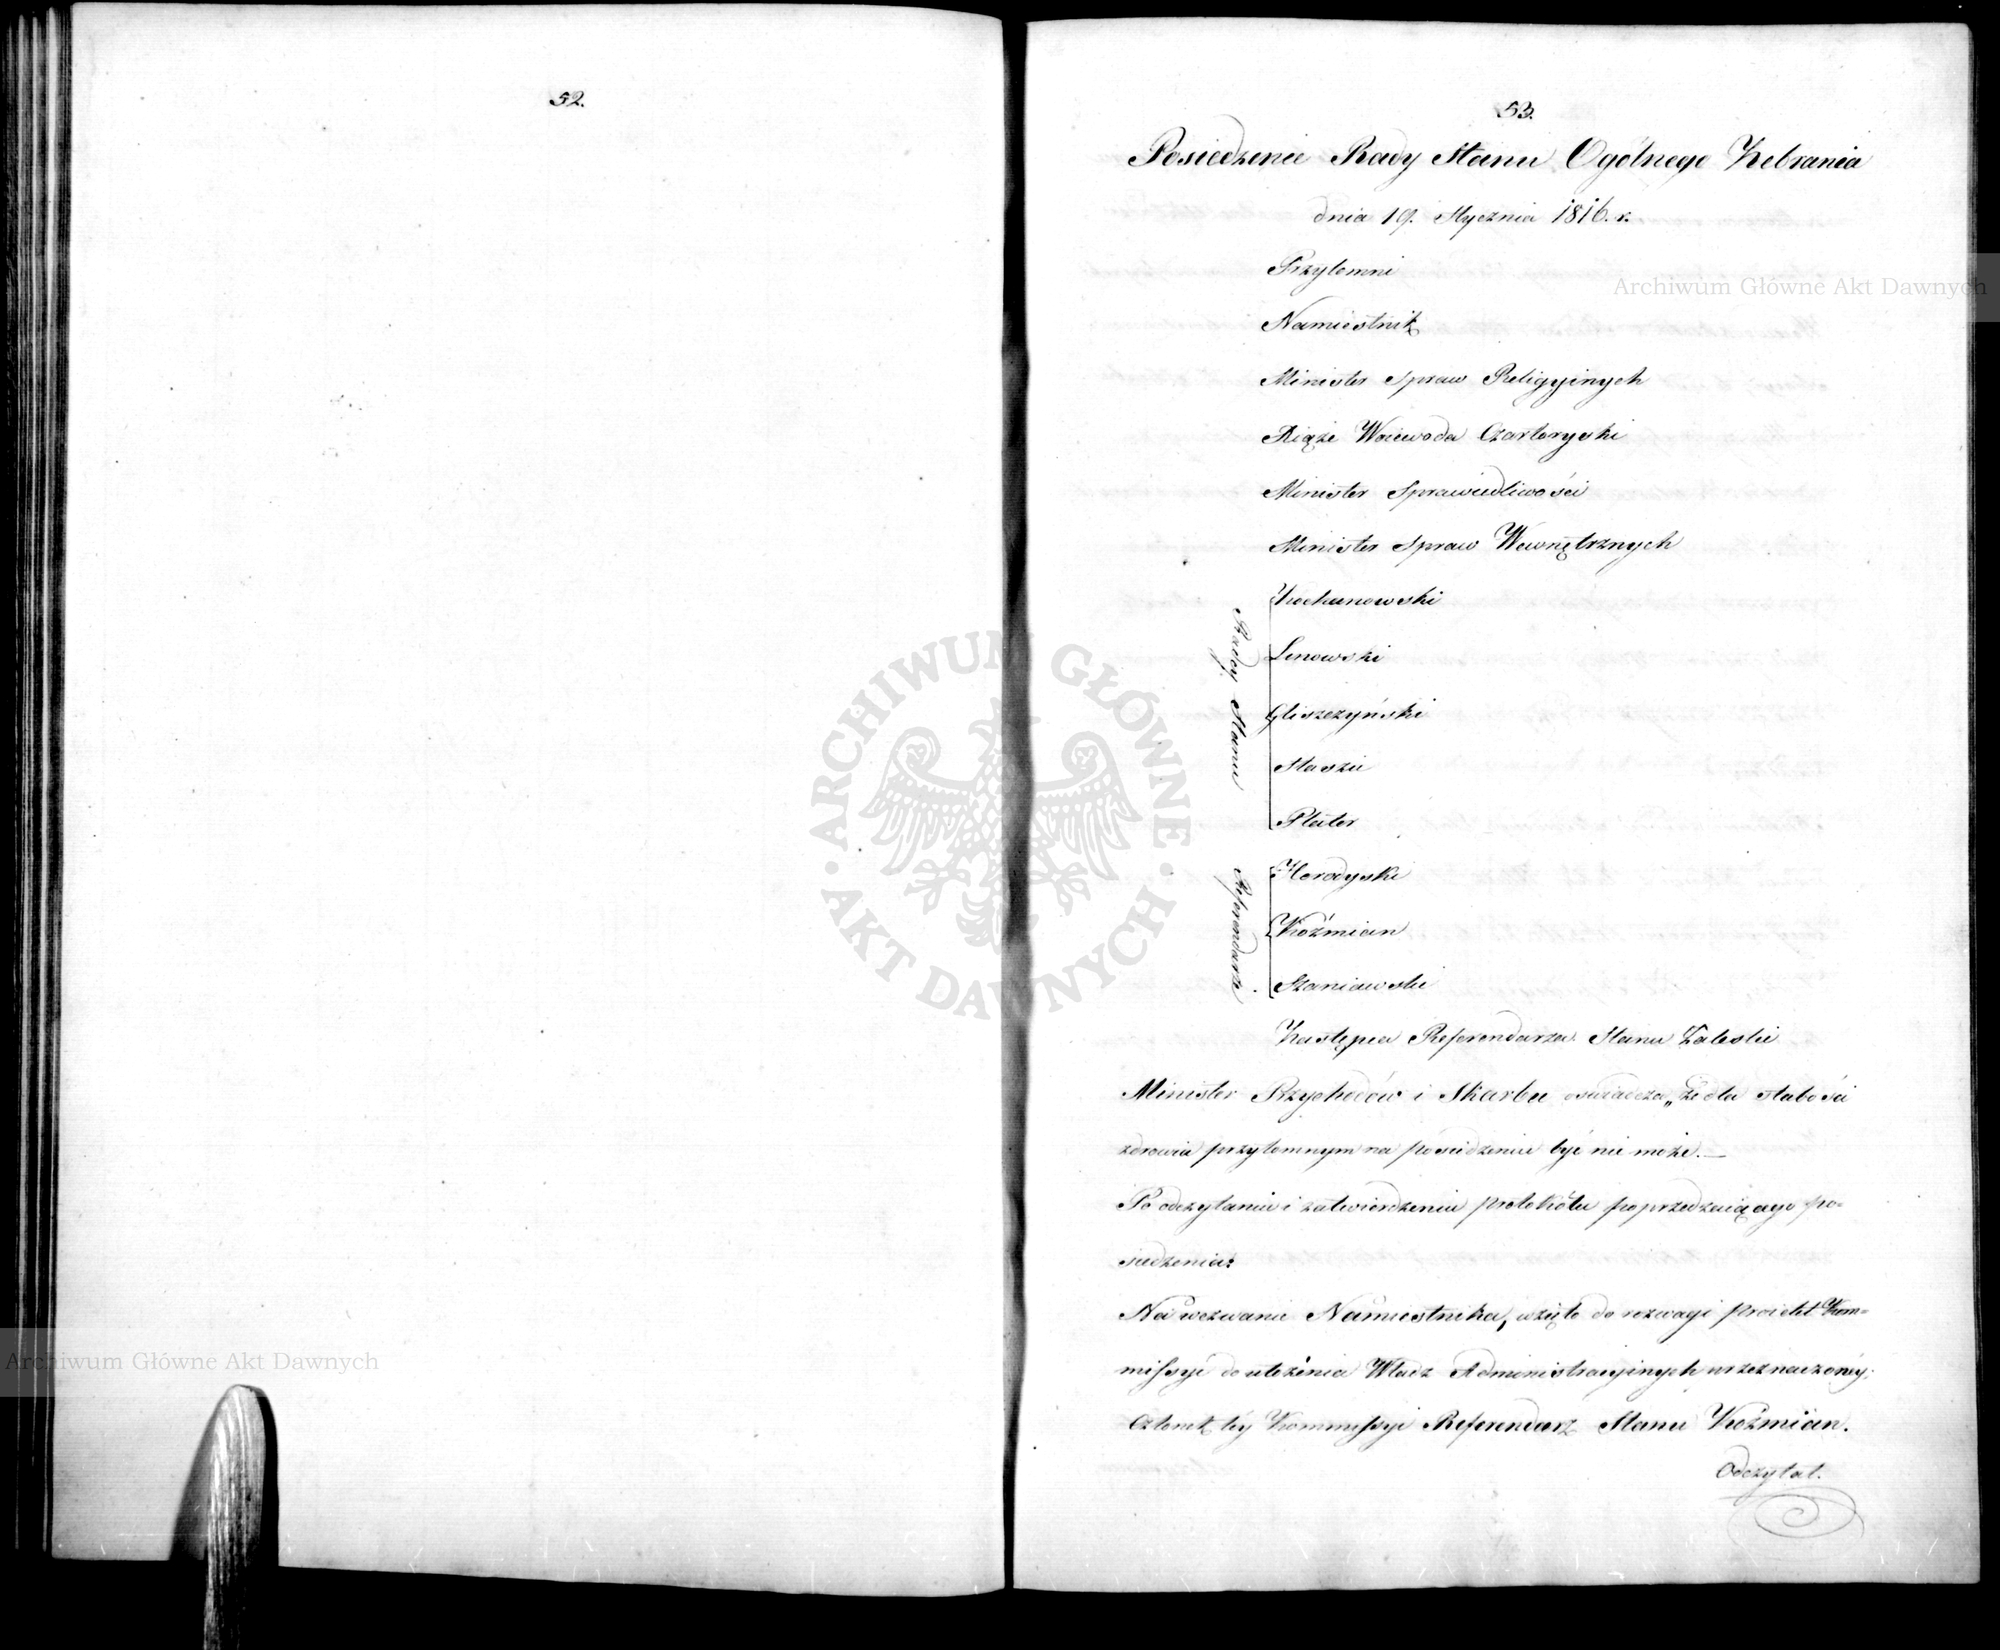 52.
53.
Posiedzenie Rady Stanu Ogólnego Zebrania
dnia 19. Stycznia 1816. r.
Przytomni
Namiestnik
Minister Spraw Religyinych
Xiąże Woiewoda Czartoryski
Minister Sprawiedliwości
Minister Spraw Wewnętrznych
Radcy Stanu
Kochanowski
Linowski
Gliszczyński
Staszic
Plater
Referendarze
Horodyski
Koźmian
Staniawski
Zastępca Referendarza Stanu Zaleski
Minister Przychodów i Skarbu oświadcza, że dla słabości
zdrowia przytomnym na posiedzeniu być nie może. —
Po odczytaniu i zatwierdzeniu protokółu poprzedzaiącego po-
siedzenia:
Na wezwanie Namiestnika, wzięto do rozwagi proiekt Kom-
missyi do ułożenia Władz Administracyinych wyznaczoney;
Członek tey Kommissyi Referendarz Stanu Koźmian.
Odczytał.
Archiwum Główne Akt Dawnych
Archiwum Główne Akt Dawnych
ARCHIWUM GŁÓWNE
AKT DAWNYCH